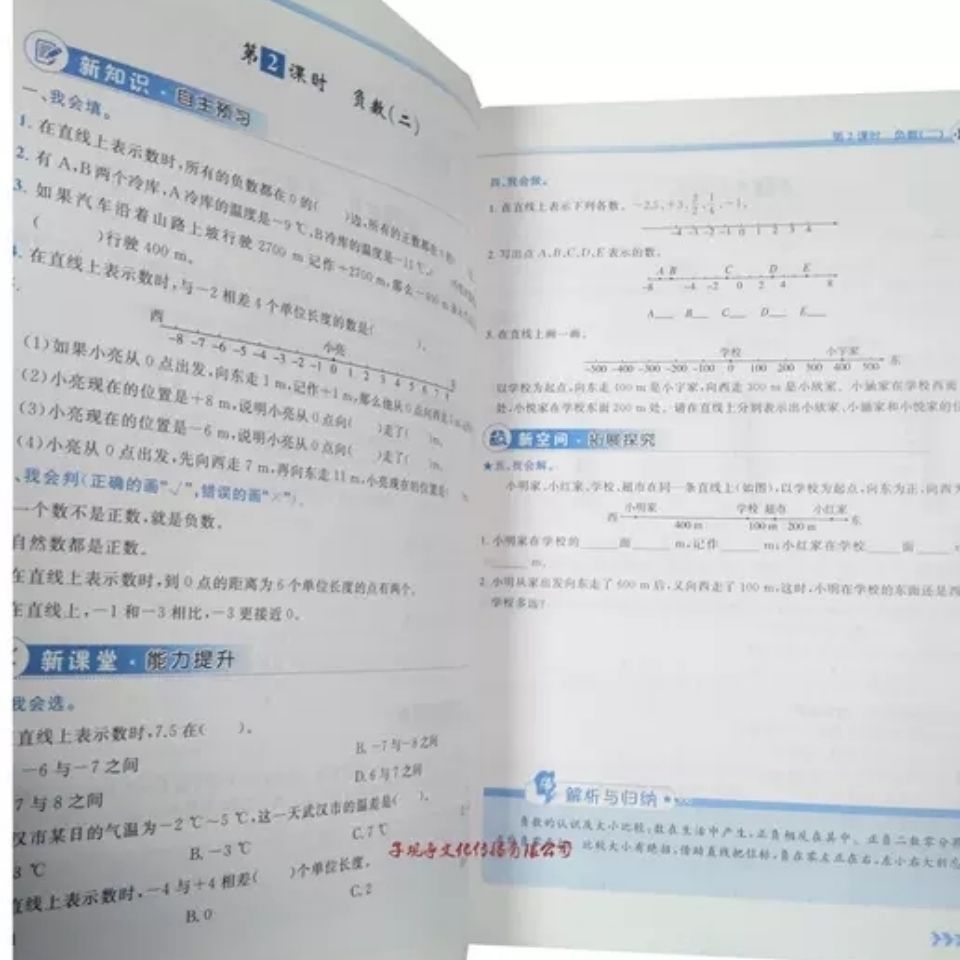 第2课时 负数(二)
新知识·自主预习
一、我会填。
1. 在直线上表示数时,所有的负数都在0的( )边,所有的正数都在
2. 有A,B两个冷库,A冷库的温度是-9℃,B冷库的温度是-11℃,
3. 如果汽车沿着山路上坡行驶2700 m记作+2700 m,那么-400 m
( )行驶400 m。
4. 在直线上表示数时,与-2相差4个单位长度的数是( )。
西 小亮
-8 -7 -6 -5 -4 -3 -2 -1 0 1 2 3 4 5 6 7 8
(1)如果小亮从0点出发,向东走1 m,记作+1 m,那么他从0点向西走
(2)小亮现在的位置是+8 m,说明小亮从0点向( )走了( )m。
(3)小亮现在的位置是-6 m,说明小亮从0点向( )走了( )m。
(4)小亮从0点出发,先向西走7 m,再向东走11 m,小亮现在的位置是
、我会判(正确的画“√”,错误的画“×”)。
一个数不是正数,就是负数。
自然数都是正数。
在直线上表示数时,到0点的距离为6个单位长度的点有两个。
在直线上,-1和-3相比,-3更接近0。
新课堂·能力提升
我会选。
直线上表示数时,7.5在( )。
-6与-7之间 B. -7与-8之间
7与8之间 D. 6与7之间
汉市某日的气温为-2℃~5℃,这一天武汉市的温差是( )。
3℃ B. -3℃ C. 7℃
直线上表示数时,-4与+4相差( )个单位长度。
B. 0 C. 2
子现季文化传播有限公司
第2课时 负数(二)
四、我会做。
1. 在直线上表示下列各数。-2.5,+3,
-4 -3 -2 -1 0 1 2 3 4
2. 写出点A,B,C,D,E表示的数。
A B C D E
-8 -4 -2 0 2 4 8
A__ B__ C__ D__ E__
3. 在直线上画一画。
学校 小宇家
-500 -400 -300 -200 -100 0 100 200 300 400 500 东
以学校为起点,向东走400 m是小宇家,向西走300 m是小欣家。小涵家在学校西面
处,小悦家在学校东面200 m处。请在直线上分别表示出小欣家、小涵家和小悦家的位
新空间·拓展探究
★五、我会解。
小明家、小红家、学校、超市在同一条直线上(如图),以学校为起点,向东为正,向西为
小明家 学校 超市 小红家
西 400 m 100 m 200 m 东
1. 小明家在学校的____面____m,记作____m;小红家在学校____面
____m。
2. 小明从家出发向东走了600 m后,又向西走了100 m,这时,小明在学校的东面还是西
学校多远?
解析与归纳
负数的认识及大小比较:数在生活中产生,正负相反在其中。正负二数零分界
比较大小有绝招,借助直线把位标,负在零左正在右,左小右大别忘